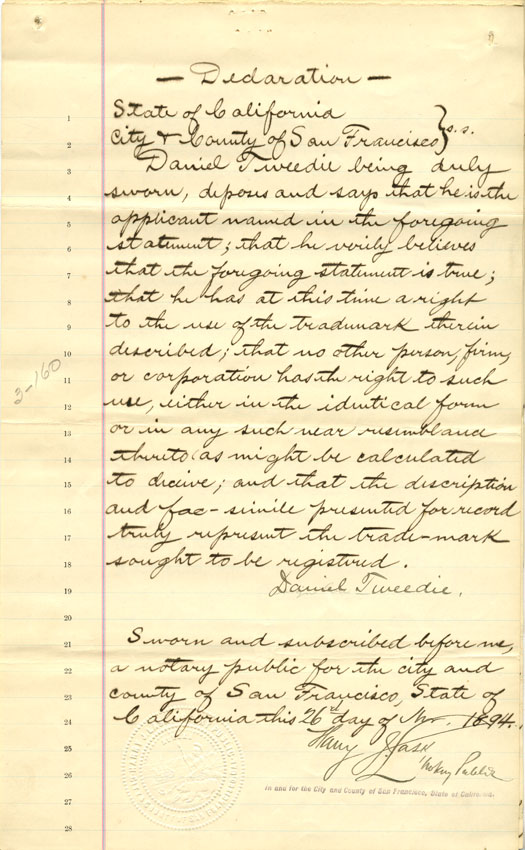 — Declaration —
State of California
City & County of San Francisco } s.s.
Daniel Tweedie being duly
sworn, deposes and says that he is the
applicant named in the foregoing
statement; that he verily believes
that the foregoing statement is true;
that he has at this time a right
to the use of the trademark therein
described; that no other person, firm,
or corporation has the right to such
use, either in the identical form
or in any such near resemblance
thereto as might be calculated
to deceive; and that the description
and fac-simile presented for record
truly represent the trade-mark
sought to be registered.
Daniel Tweedie.
Sworn and subscribed before me,
a notary public for the city and
county of San Francisco, State of
California this 26th day of Nov. 1894.
Harry J. Lask
Notary Public
In and for the City and County of San Francisco, State of California.
3-160
1
2
3
4
5
6
7
8
9
10
11
12
13
14
15
16
17
18
19
20
21
22
23
24
25
26
27
28